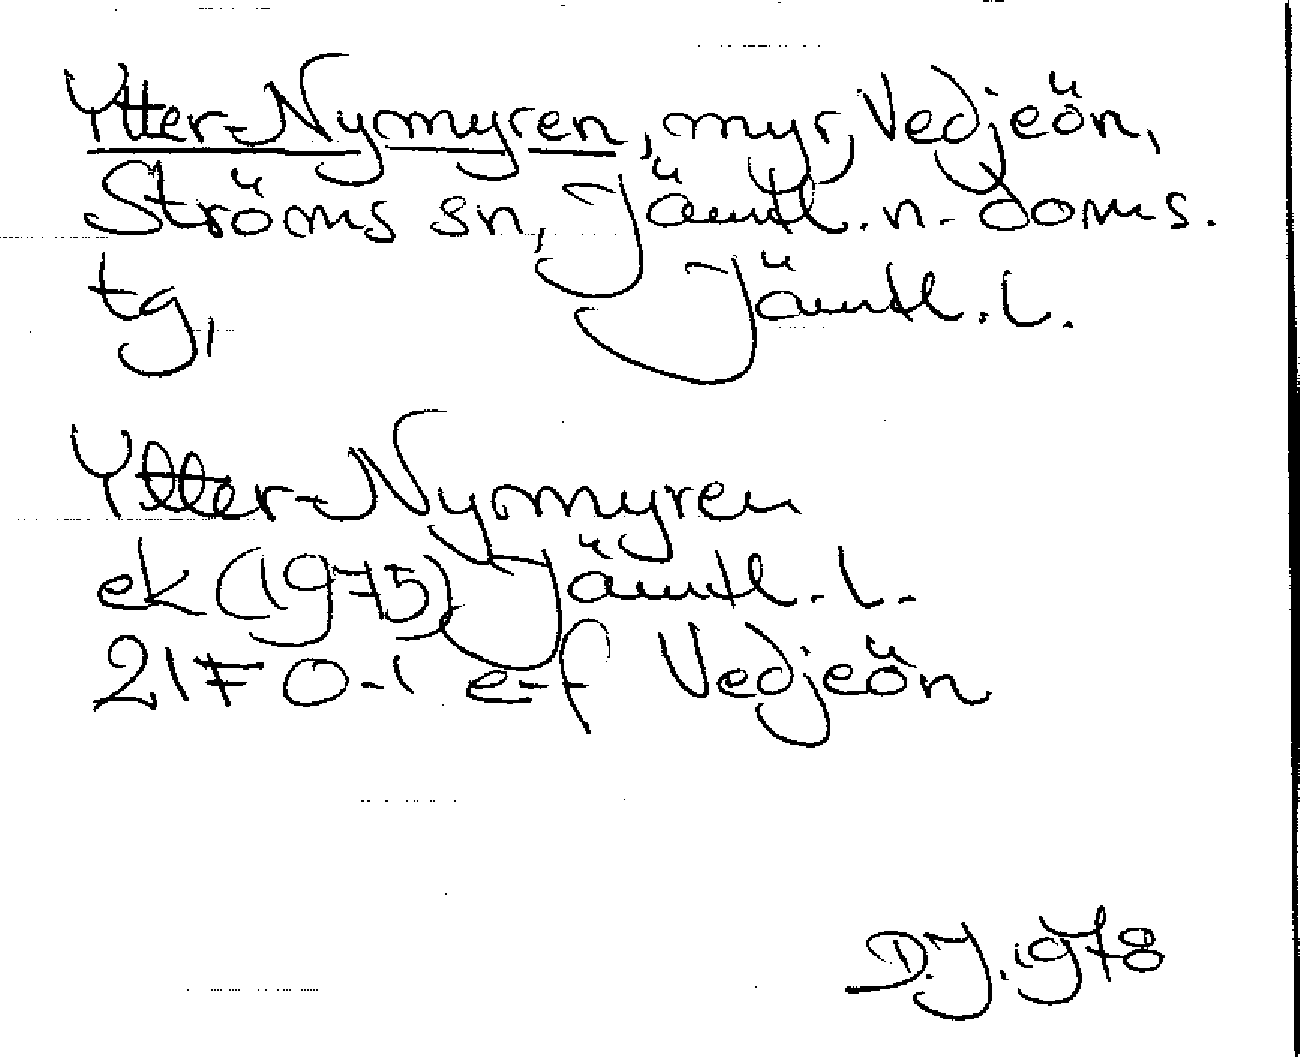 Ytter-Nymyren, myr, Vedjeön,
Ströms sn, Jämtl. n. doms.
tg, Jämtl. l.
Ytter-Nymyren
ek (1975) Jämtl. l.
21F 0-1 e-f Vedjeön
D.J. 1978